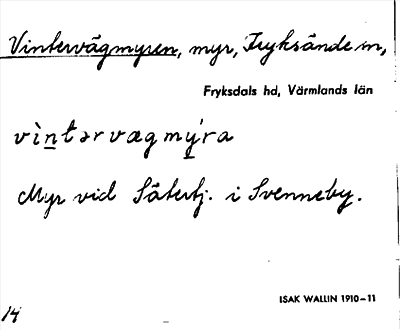 Vintervägmyren, myr, Fryksände sn,
Fryksdals hd, Värmlands län
vìn̲tərvægmý̲ra
Myr vid Sätertj. i Svenneby.
ISAK WALLIN 1910-11
14